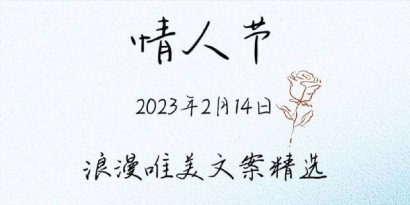 情人节
2023年2月14日
浪漫唯美文案精选